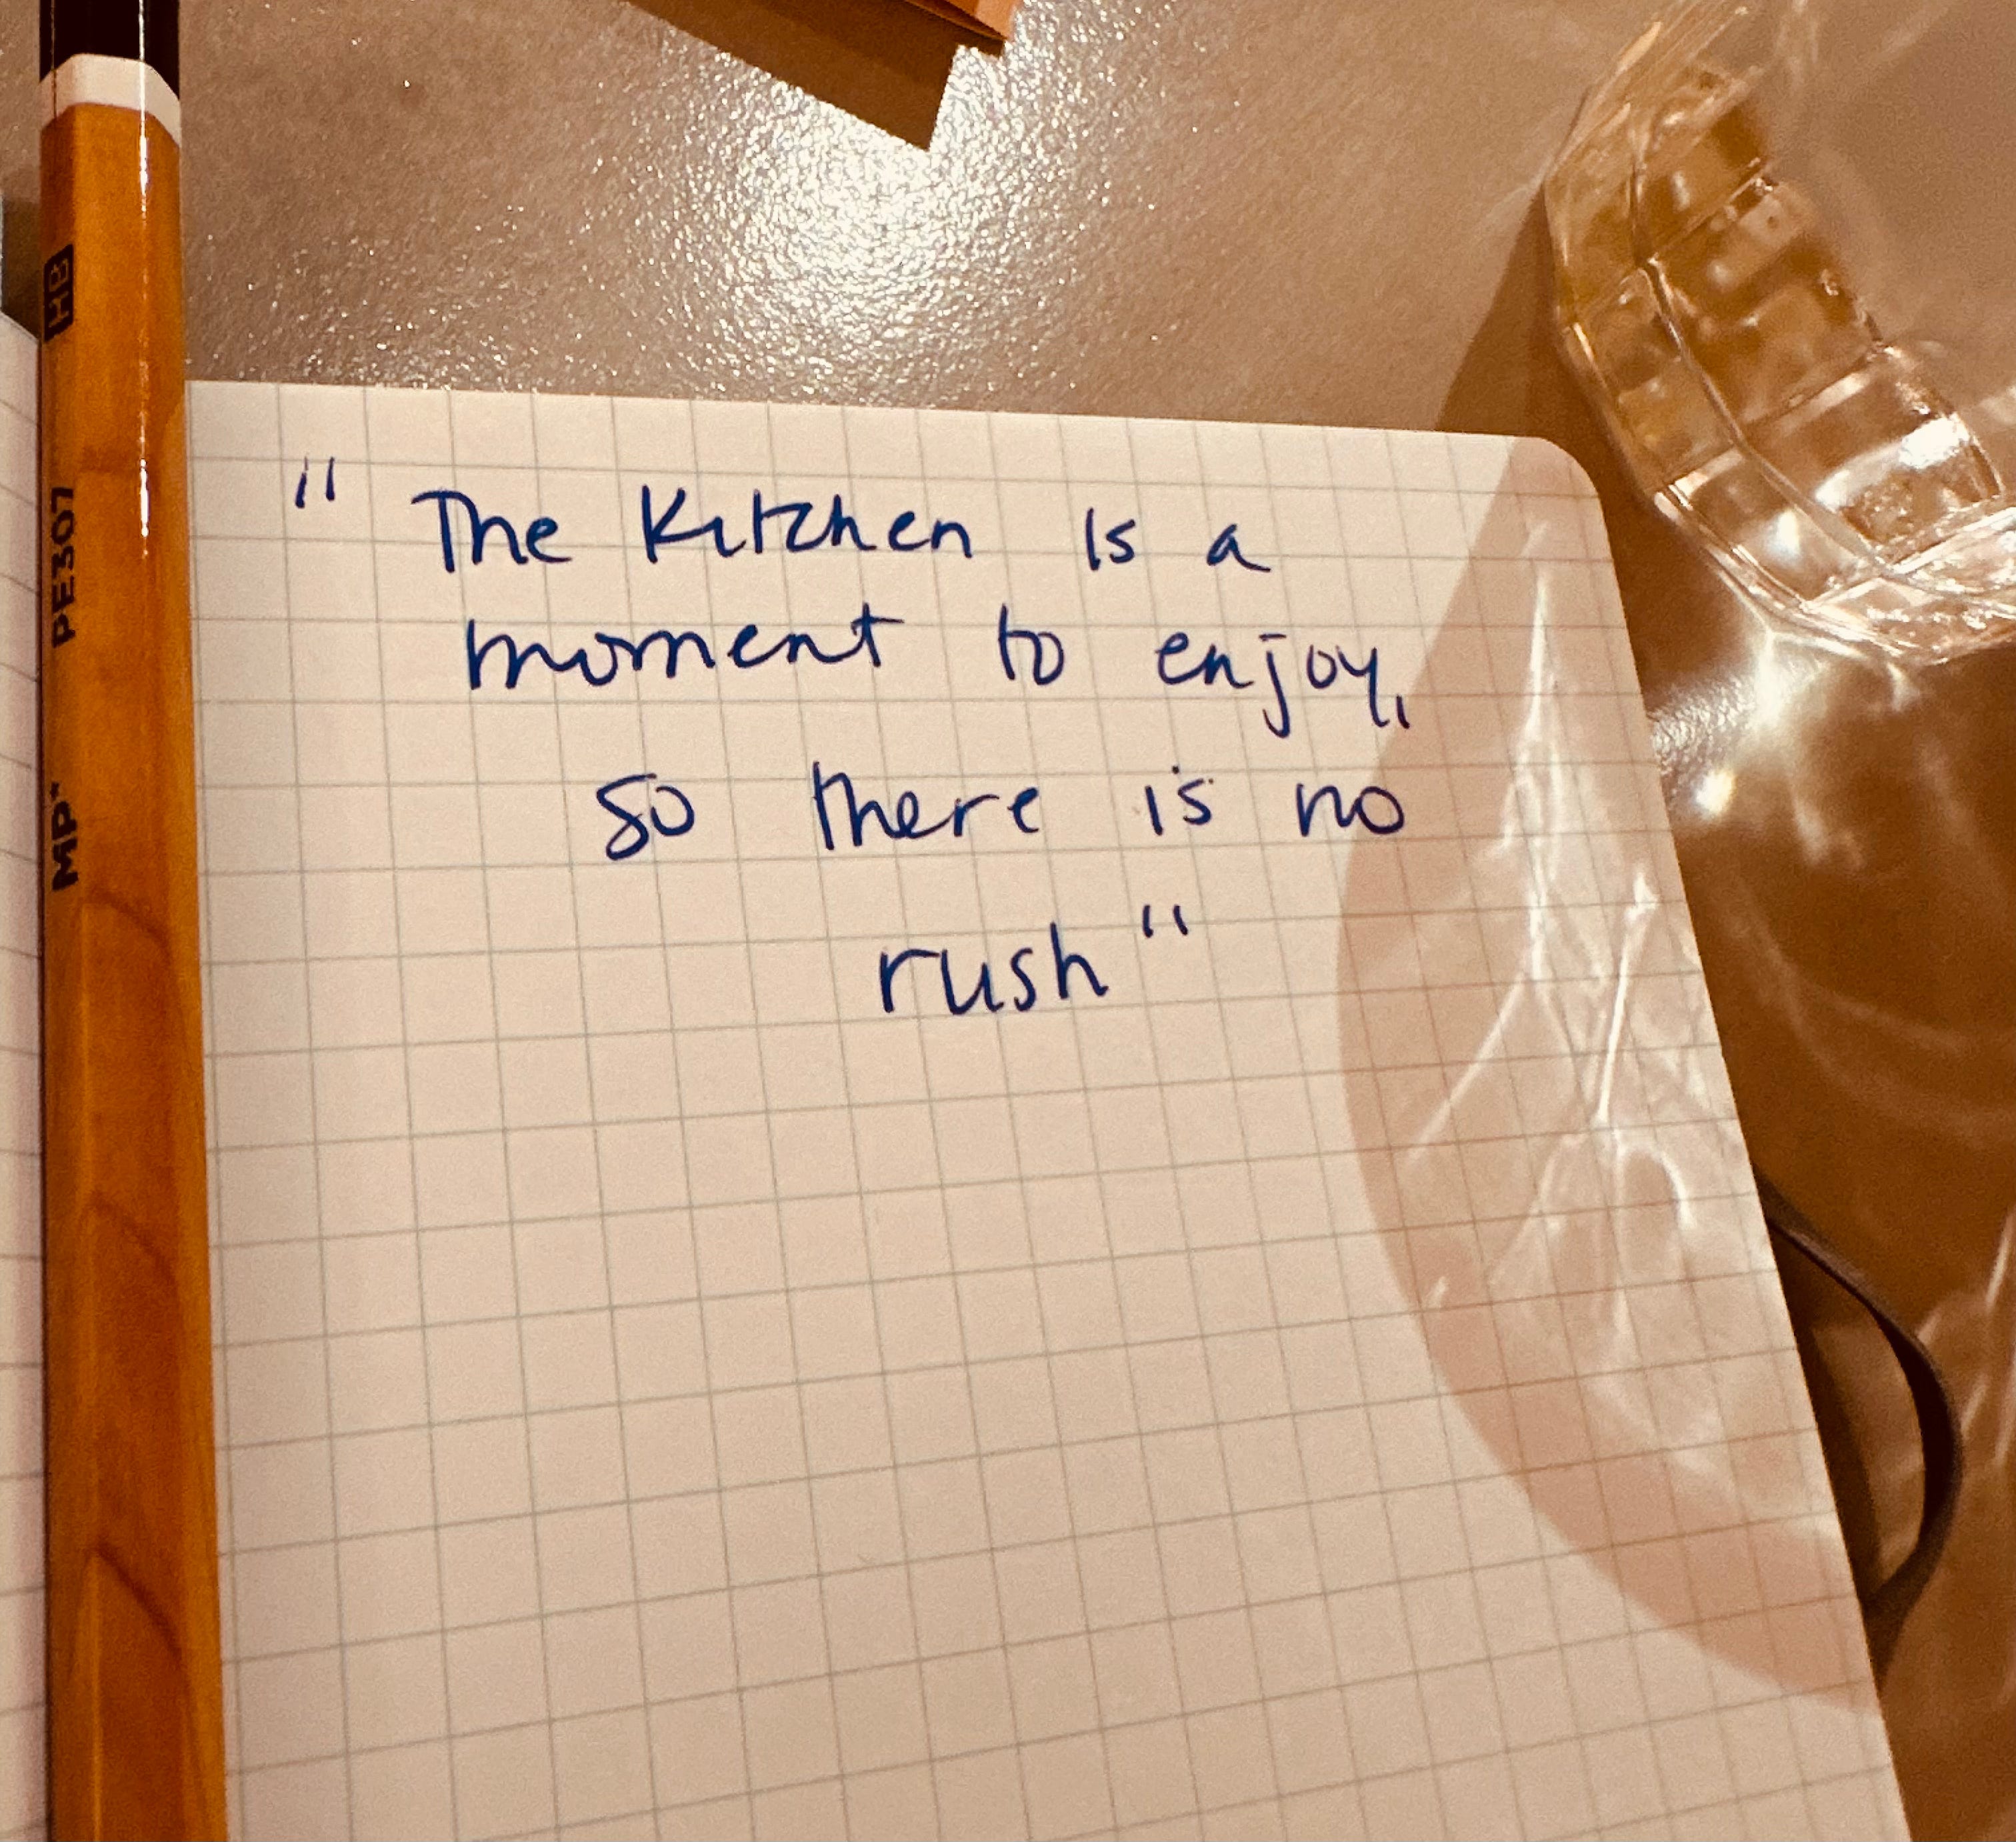 " The Kitchen is a
moment to enjoy,
so there is no
rush "
HB
PE307
MP*